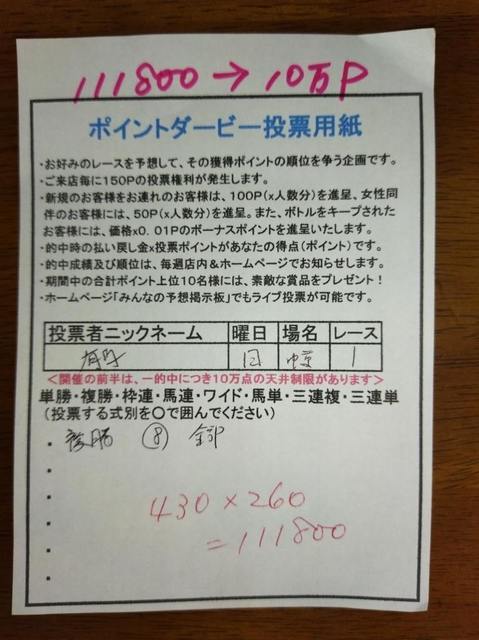 111800→10万P
ポイントダービー投票用紙
・お好みのレースを予想して、その獲得ポイントの順位を争う企画です。
・ご来店毎に150Pの投票権利が発生します。
・新規のお客様をお連れのお客様は、100P(x人数分)を進呈、女性同
伴のお客様には、50P(x人数分)を進呈。また、ボトルをキープされた
お客様には、価格x0.01Pのボーナスポイントを進呈いたします。
・的中時の払い戻し金x投票ポイントがあなたの得点(ポイント)です。
・的中成績及び順位は、毎週店内&ホームページでお知らせします。
・期間中の合計ポイント上位10名様には、素敵な賞品をプレゼント!
・ホームページ「みんなの予想掲示板」でもライブ投票が可能です。
投票者ニックネーム 曜日 場名 レース
日 中京 1
<開催の前半は、一的中につき10万点の天井制限があります>
単勝・複勝・枠連・馬連・ワイド・馬単・三連複・三連単
(投票する式別を○で囲んでください)
・ 複勝 ⑧ 全部
・
・
・
・
・
430×260
=111800